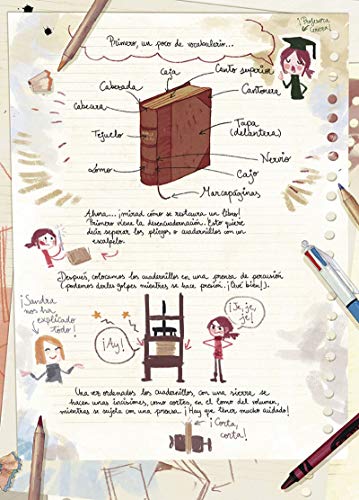 Primero, un poco de vocabulario...
¡Profesora
Carmen!
Caja
Canto superior
Cabezada
Cantonera
Cabecera
Tapa
(delantera)
Tejuelo
Nervio
Lomo
Cajo
Marcapáginas
Ahora... ¡mirad cómo se restaura un libro!
Primero viene la desencuadernación. Esto quiere
decir separar los pliegos o cuadernillos con un
escalpelo.
Después, colocamos los cuadernillos en una prensa de percusión
(podemos darles golpes mientras se hace presión. ¡Qué bien!).
¡Sandra
nos ha
explicado
todo!
¡Ay!
¡Je, je,
je!
Una vez ordenados los cuadernillos, con una sierra se
hacen unas incisiones, como cortes, en el lomo del volumen,
mientras se sujeta con una prensa. ¡Hay que tener mucho cuidado!
¡Corta,
corta!